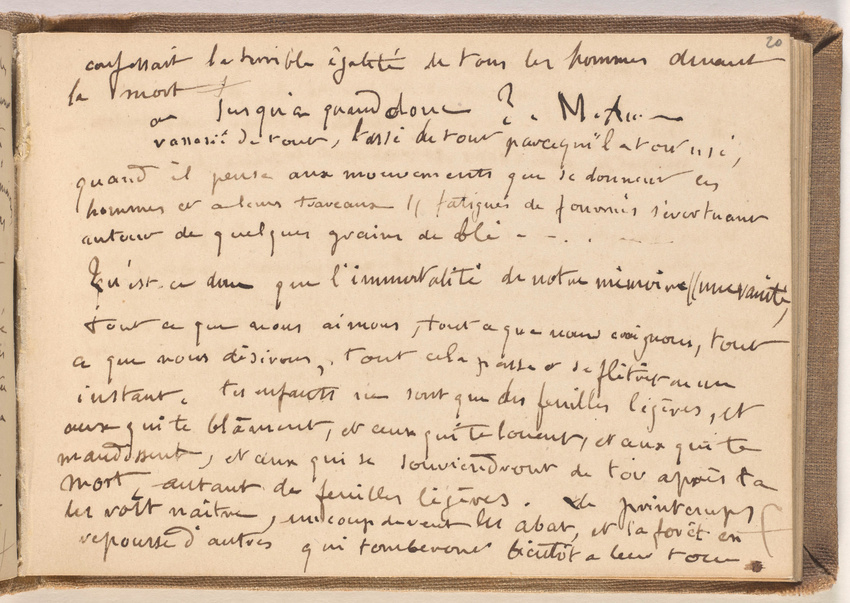 20
confessait la terrible égalité de tous les hommes devant
la mort
ou Jusqu'à quand donc ? . M. Au.
rassasié de tout, lassé de tout parcequ'il a tout usé,
quand il pense aux mouvements que se donnent les
hommes et a leurs travaux // fatigues de fourmis s'évertuant
autour de quelques grains de blé - - . .
Qu'est-ce donc que l'immortalité de notre mémoire // une vanité,
tout ce que nous aimons, tout ce que nous craignons, tout
ce que nous désirons, tout cela passe et se flétrit en un
instant. tes enfants ne sont que des feuilles légères, et
ceux qui te blâment, et ceux qui te louent, et ceux qui te
maudissent, et ceux qui se souviendront de toi après ta
mort, autant de feuilles légères. Le printemps
les voit naître, un coup de vent les abat, et la forêt en
repousse d'autres qui tomberont bientôt a leur tour.